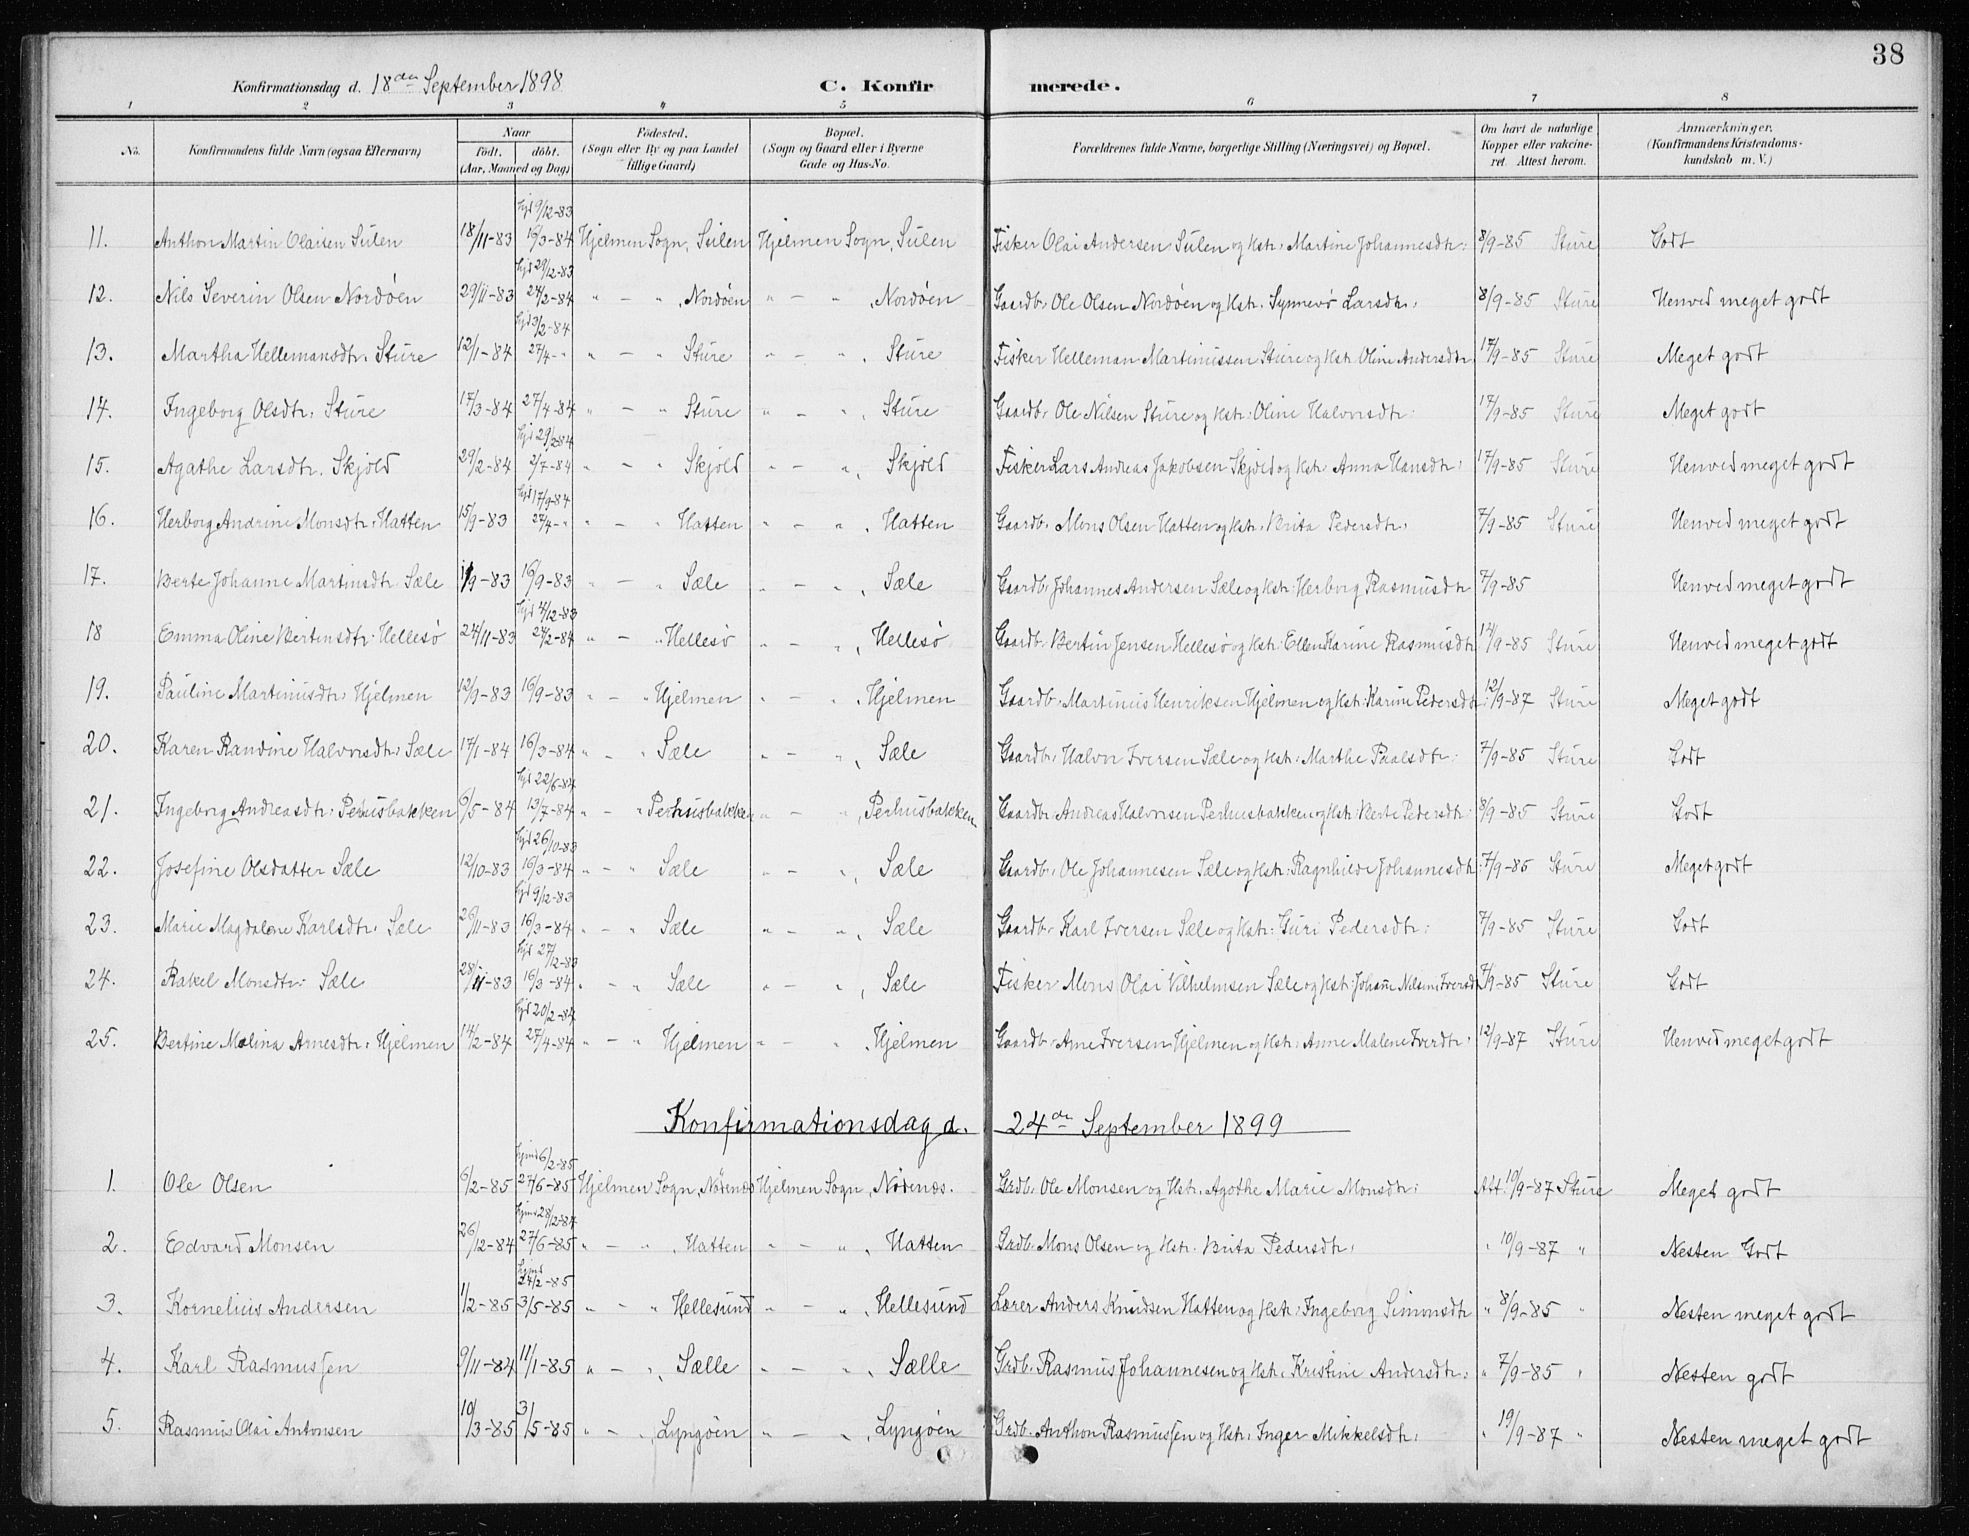 38
Konfirmationsdag d. 18de September 1898 C. Konfirmerede.
1 2 3 4 5 6 7 8
No. Konfirmandens fulde Navn (ogsaa Efternavn) Naar født. døbt. (Aar, Maaned og Dag) Fødested. (Sogn eller By og paa Landet tillige Gaard) Bopæl. (Sogn og Gaard eller i Byerne Gade og Hus-No. Forældrenes fulde Navne, borgerlige Stilling (Næringsvei) og Bopæl. Om havt de naturlige Kopper eller vakcineret. Attest herom. Anmærkninger. (Konfirmandens Kristendomskundskab m. V.)
hjd 9/12-83
11. Anthon Martin Olaisen Sulen 18/11-83 16/3-84 Hjelmen Sogn, Sulen Hjelmen Sogn, Sulen Fisker Olai Andersen Sulen og Hstr: Martine Johannesdtr: 8/9-85 Sture Godt
hjd 29/12-83
12. Nils Severin Olsen Nordøen 29/11-83 24/2-84 " - " , Nordøen " - " , Nordøen Gaardb. Ole Olsen Nordøen og Hstr. Synnevø Larsdtr: 8/9-85 Sture Henved meget godt
hjd 3/2-84
13. Martha Hellemansdtr. Sture 12/1-84 27/4-" " - " Sture " - " , Sture Fisker Helleman Martinussen Sture og Hstr. Oline Andersdtr 17/9-85 Sture Meget godt
14. Ingeborg Olsdtr: Sture 17/3-84 27/4-84 " - " Sture " - " , Sture Gaardb. Ole Nilsen Sture og Hstr: Oline Halvorsdtr: 17/9-85 Sture Meget godt
hjd 29/2-84
15. Agathe Larsdtr. Skjold 29/2-84 2/7-84 " - " Skjold " - " , Skjold Fisker Lars Andreas Jakobsen Skjold og Hstr: Anna Hansdtr: 17/9-85 Sture Henved meget godt
hjd 17/9-84
16. Herborg Andrine Monsdtr. Hatten 15/9-83 27/4-" " - " Hatten " - " , Hatten Gaardb. Mons Olsen Hatten og Hstr. Brita Pedersdtr: 7/9-85 Sture Henved meget godt
17. Berte Johanne Martinsdtr. Sæle 1/9-83 16/9-83 " - " Sæle " - " , Sæle Gaardb. Johannes Andersen Sæle og Hstr: Herborg Rasmusdtr 7/9-85 Henved meget godt
hjd 4/12-83
18 Emma Oline Bertensdtr: Hellesø 24/11-83 24/2-84 " - " Hellesø " - " , Hellesø Gaardb. Bertin Jensen Hellesø og Hstr: Ellen Karine Rasmusdtr 12/9-85 Sture Henved meget godt
19. Pauline Martinusdtr: Hjelmen 12/9-83 16/9-83 " - " Hjelmen " - " , Hjelmen Gaardb. Martinus Henriksen Hjelmen og Hstr: Karine Pedersdtr: 12/9-87 Sture Meget godt
20. Karen Randine Halvorsdtr: Sæle 17/1-84 16/3-84 " - " Sæle " - " , Sæle Gaardb. Halvor Iversen Sæle og Hstr: Marthe Paalsdtr: 7/9-85 Sture Godt
hjd 22/6-84
21. Ingeborg Andreasdtr: Perhusbakken 6/5-84 13/7-84 " - " Perhusbakken " - " , Perhusbakken Gaardb. Andreas Halvorsen Perhusbakken og Hstr: Berte Pedersdtr: 8/9-85 Sture Godt
hjd 26/10-83
22. Josefine Olsdatter Sæle 12/10-83 16/3-84 " - " Sæle " - " , Sæle Gaardb. Ole Johannesen Sæle og Hstr: Ragnhilde Johannesdtr: 7/9-85 Sture Meget godt
hjd 9/12-83
23. Marie Magdalene Karlsdtr: Sæle 26/11-83 16/3-84 " - " Sæle " - " , Sæle Gaardb. Karl Iversen Sæle og Hstr: Guri Pedersdtr: 7/9-85 Sture Godt
hjd 27/12-83
24. Rakel Monsdtr: Sæle 28/11-83 16/3-84 " - " Sæle " - " , Sæle Fisker Mons Olai Vilhelmsen Sæle og Hstr: 7/9-85 Sture Godt
hjd 20/2-84
25. Bertine Malina Arnesdtr: Hjelmen 14/2-84 27/4-84 " - " Hjelmen " - " , Hjelmen Gaardb. Arne Iversen Hjelmen og Hstr: Anne Malene Iverdtr: 12/9-87 Sture Henved meget godt
Konfirmationsdag d. 24de September 1899
hjmd 6/2-85
1. Ole Olsen 6/2-85 27/6-85 Hjelmen Sogn, Nødenæs Hjelmen Sogn, Nødenæs. Grdb. Ole Monsen og Hstr. Agothe Marie Monsdtr: Att. 10/9-87 Sture Meget godt
hjmd 28/12-84
2. Edvard Monsen 26/12-84 27/6-85 " - " , Hatten " - " , Hatten Grdb. Mons Olsen og Hstr. Brita Pedersdtr: " 10/9-87 " Nesten Godt
hjmd 24/2-85
3. Kornelius Andersen 1/2-85 3/5-85 " - " Hellesund " - " , Hellesund Lærer Anders Knudsen Hatten og Hstr: Ingeborg Simonsdtr " 8/9-85 " Nesten meget godt
4. Karl Rasmussen 9/11-84 11/1-85 " - " , Sælle " - " , Sælle Grdb. Rasmus Johannesen og Hstr. Kristine Andersdtr: " 7/9-85 " Nesten godt
5. Rasmus Olai Antonsen 10/3-85 3/5-85 " - " , Lyngøen " - " , Lyngøen Grdb. Anthon Rasmussen og Hstr: Inger Mikkelsdtr: " 19/9-87 " Nesten meget godt